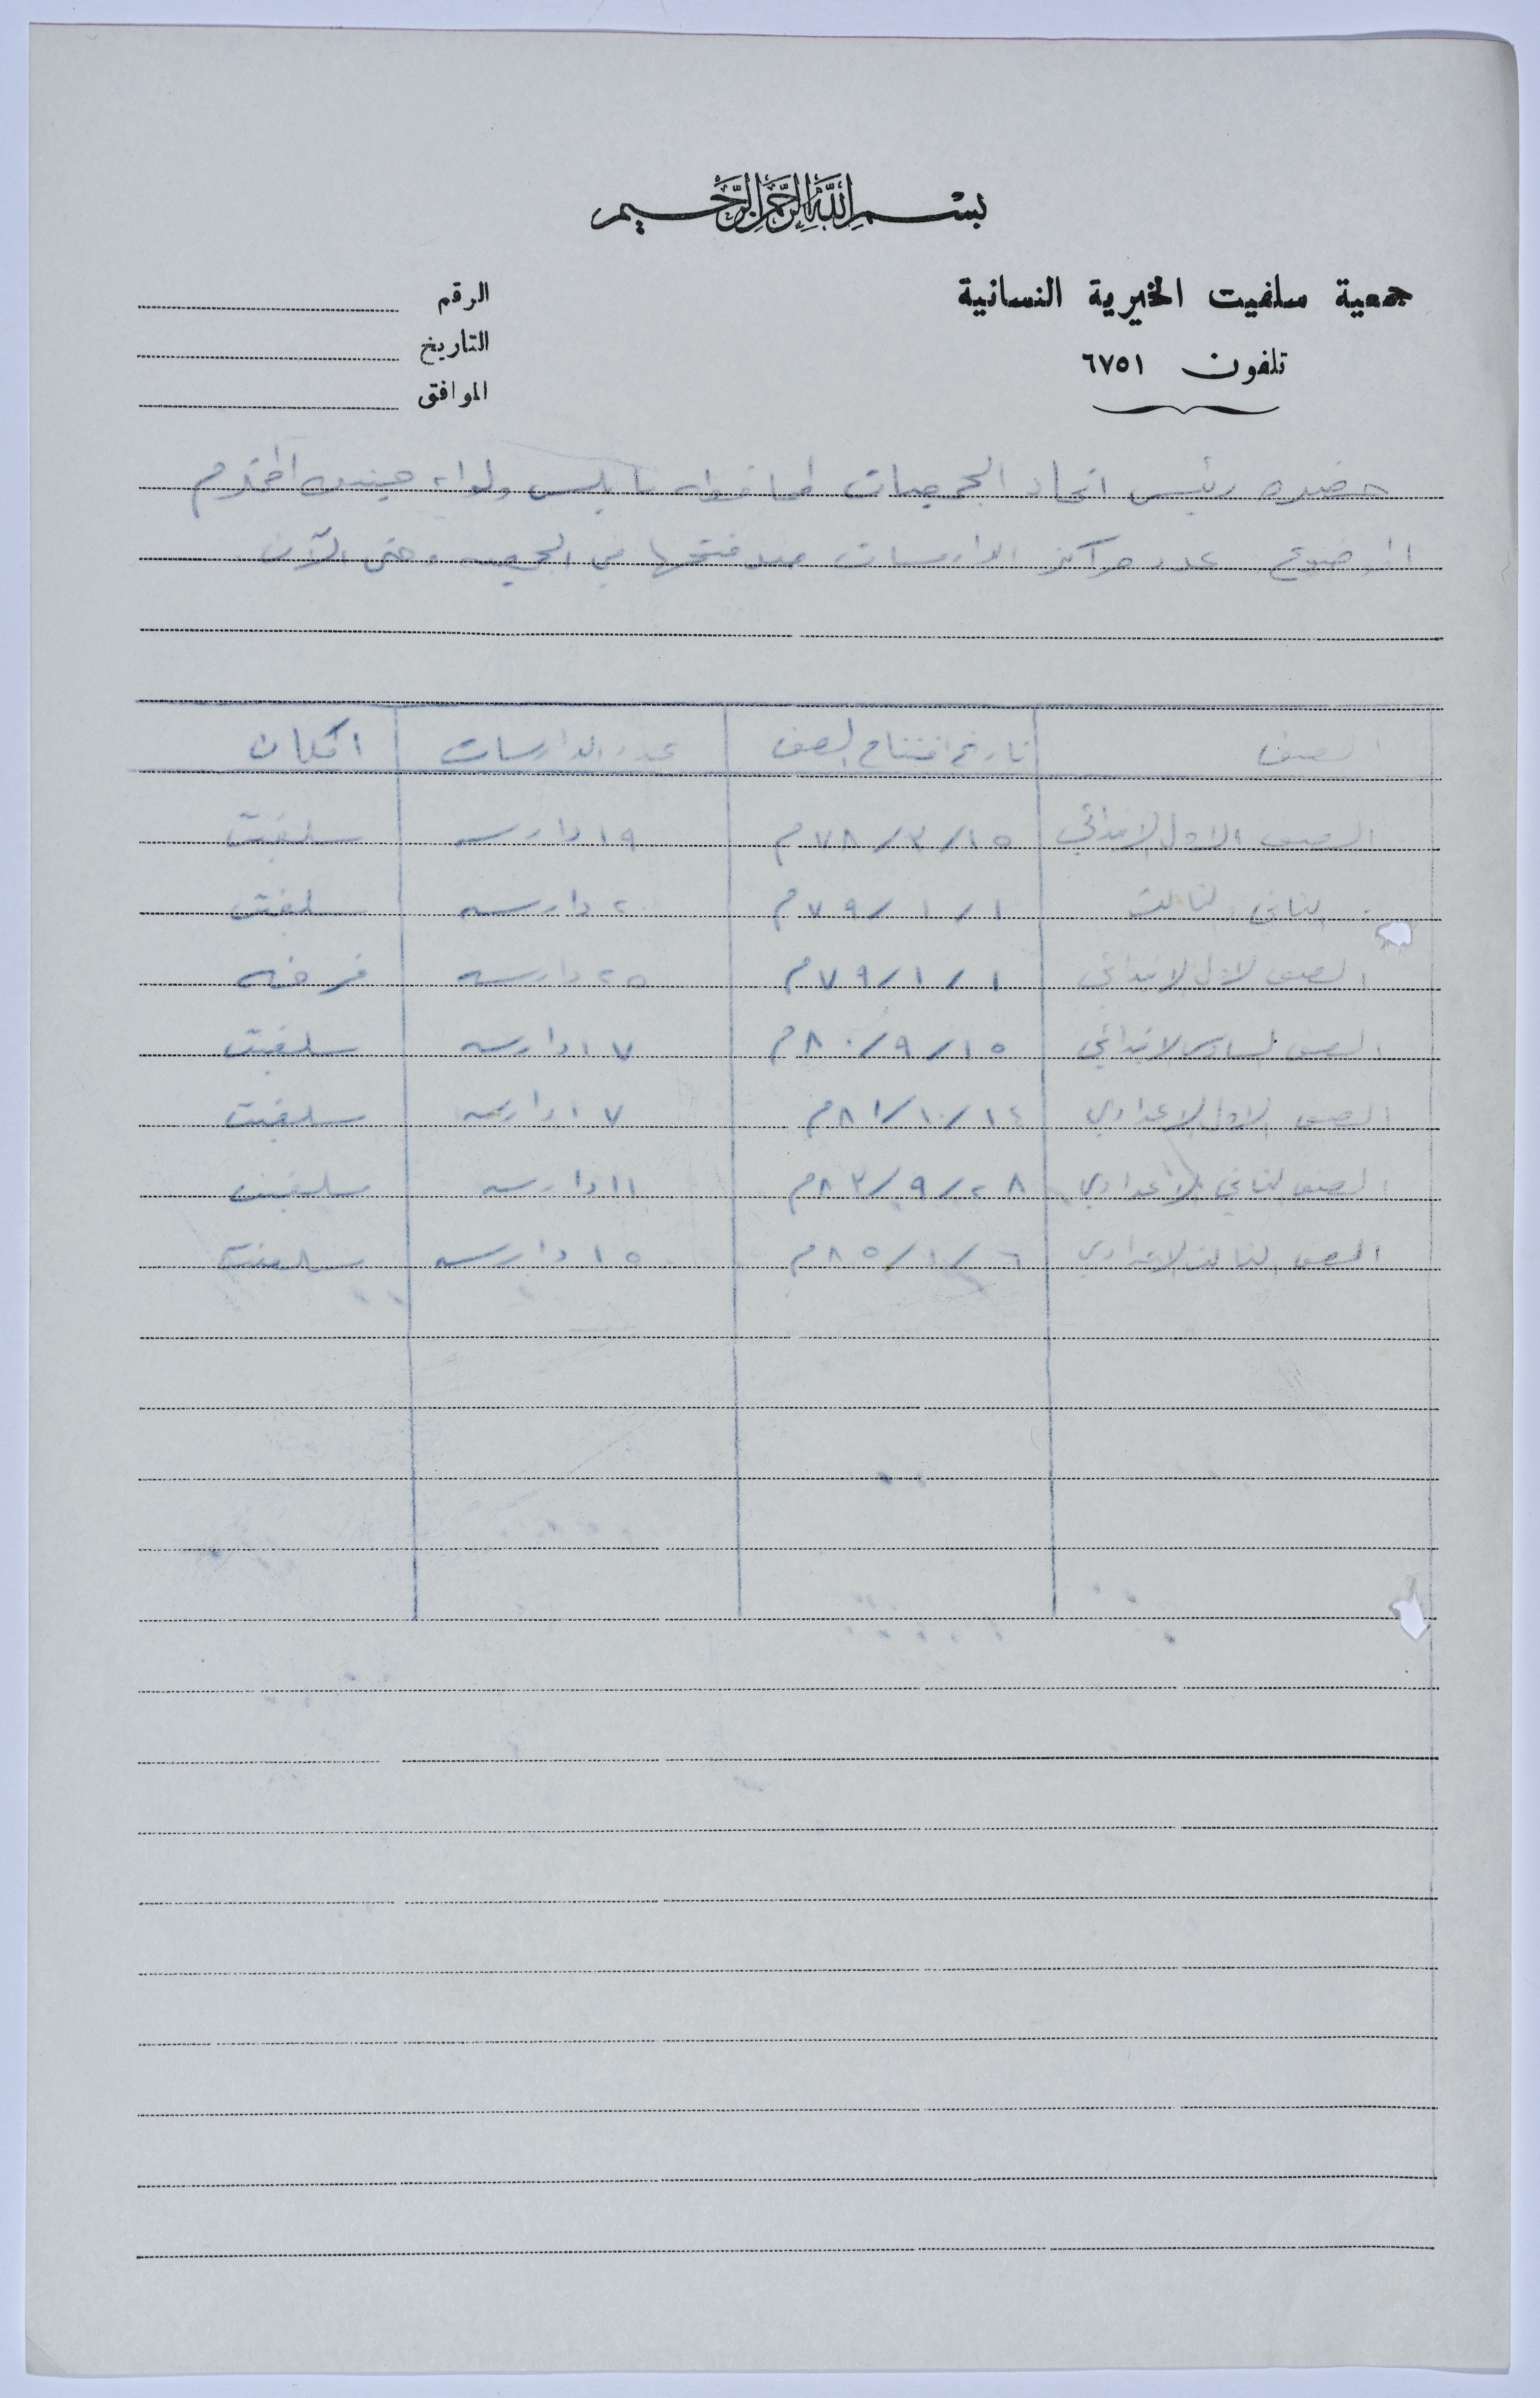 بسم الله الرحمن الرحيم
جمعية سلفيت الخيرية النسائية
تلفون ٦٧٥١
الرقم
التاريخ
الموافق
حضرة رئيس اتحاد الجمعيات لمحافظه نابلس ولواء جنين المحترم
الموضوع عدد مراكز الدارسات منذ فتحها في الجمعيه وحتى الآن
الصف تاريخ افتتاح الصف عدد الدارسات المكان
الصف الاول الابتدائي ١٥/٣/٧٨م ١٩ دارسه سلفيت
الثاني والثالث ١/١/٧٩م ٢٠ دارسه سلفيت
الصف الاول الابتدائي ١/١/٧٩م ٢٥ دارسه فرخه
الصف السادس الابتدائي ١٥/٩/٨٠م ١٧ دارسه سلفيت
الصف الاول الاعدادي ١٤/١٠/٨١م ١٧ دارسه سلفيت
الصف الثاني الاعدادي ٢٨/٩/٨٣م ١١ دارسه سلفيت
الصف الثالث الاعدادي ٦/١/٨٥م ١٥ دارسه سلفيت